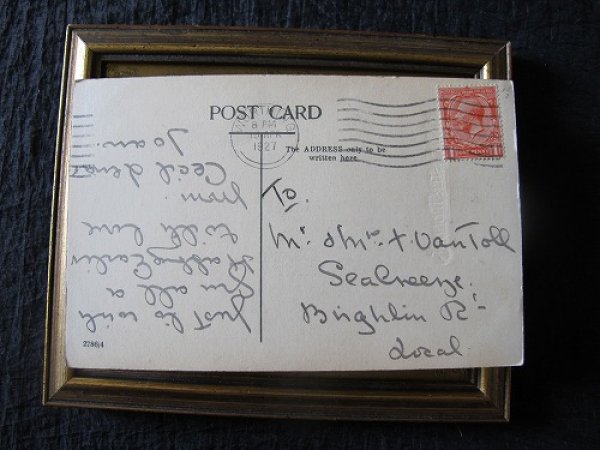 POST CARD
The ADDRESS only to be
written here.
8 PM
1927
To
Mr. & Mrs. X. Van Toll
Seabreeze.
Rd
Local
Just to wish
you all a
Happy Easter
With love
from
Cecil
Joan.
2786/4